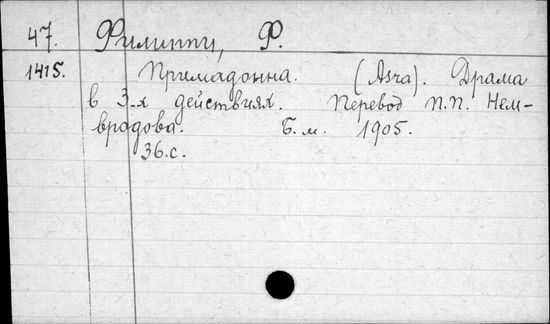 47. Филиппи, Ф.
1415. Примадонна. (Asra). Драма
в 3-х действиях. Перевод П.П. Нем-
вродова. Б.м. 1905.
36.с.